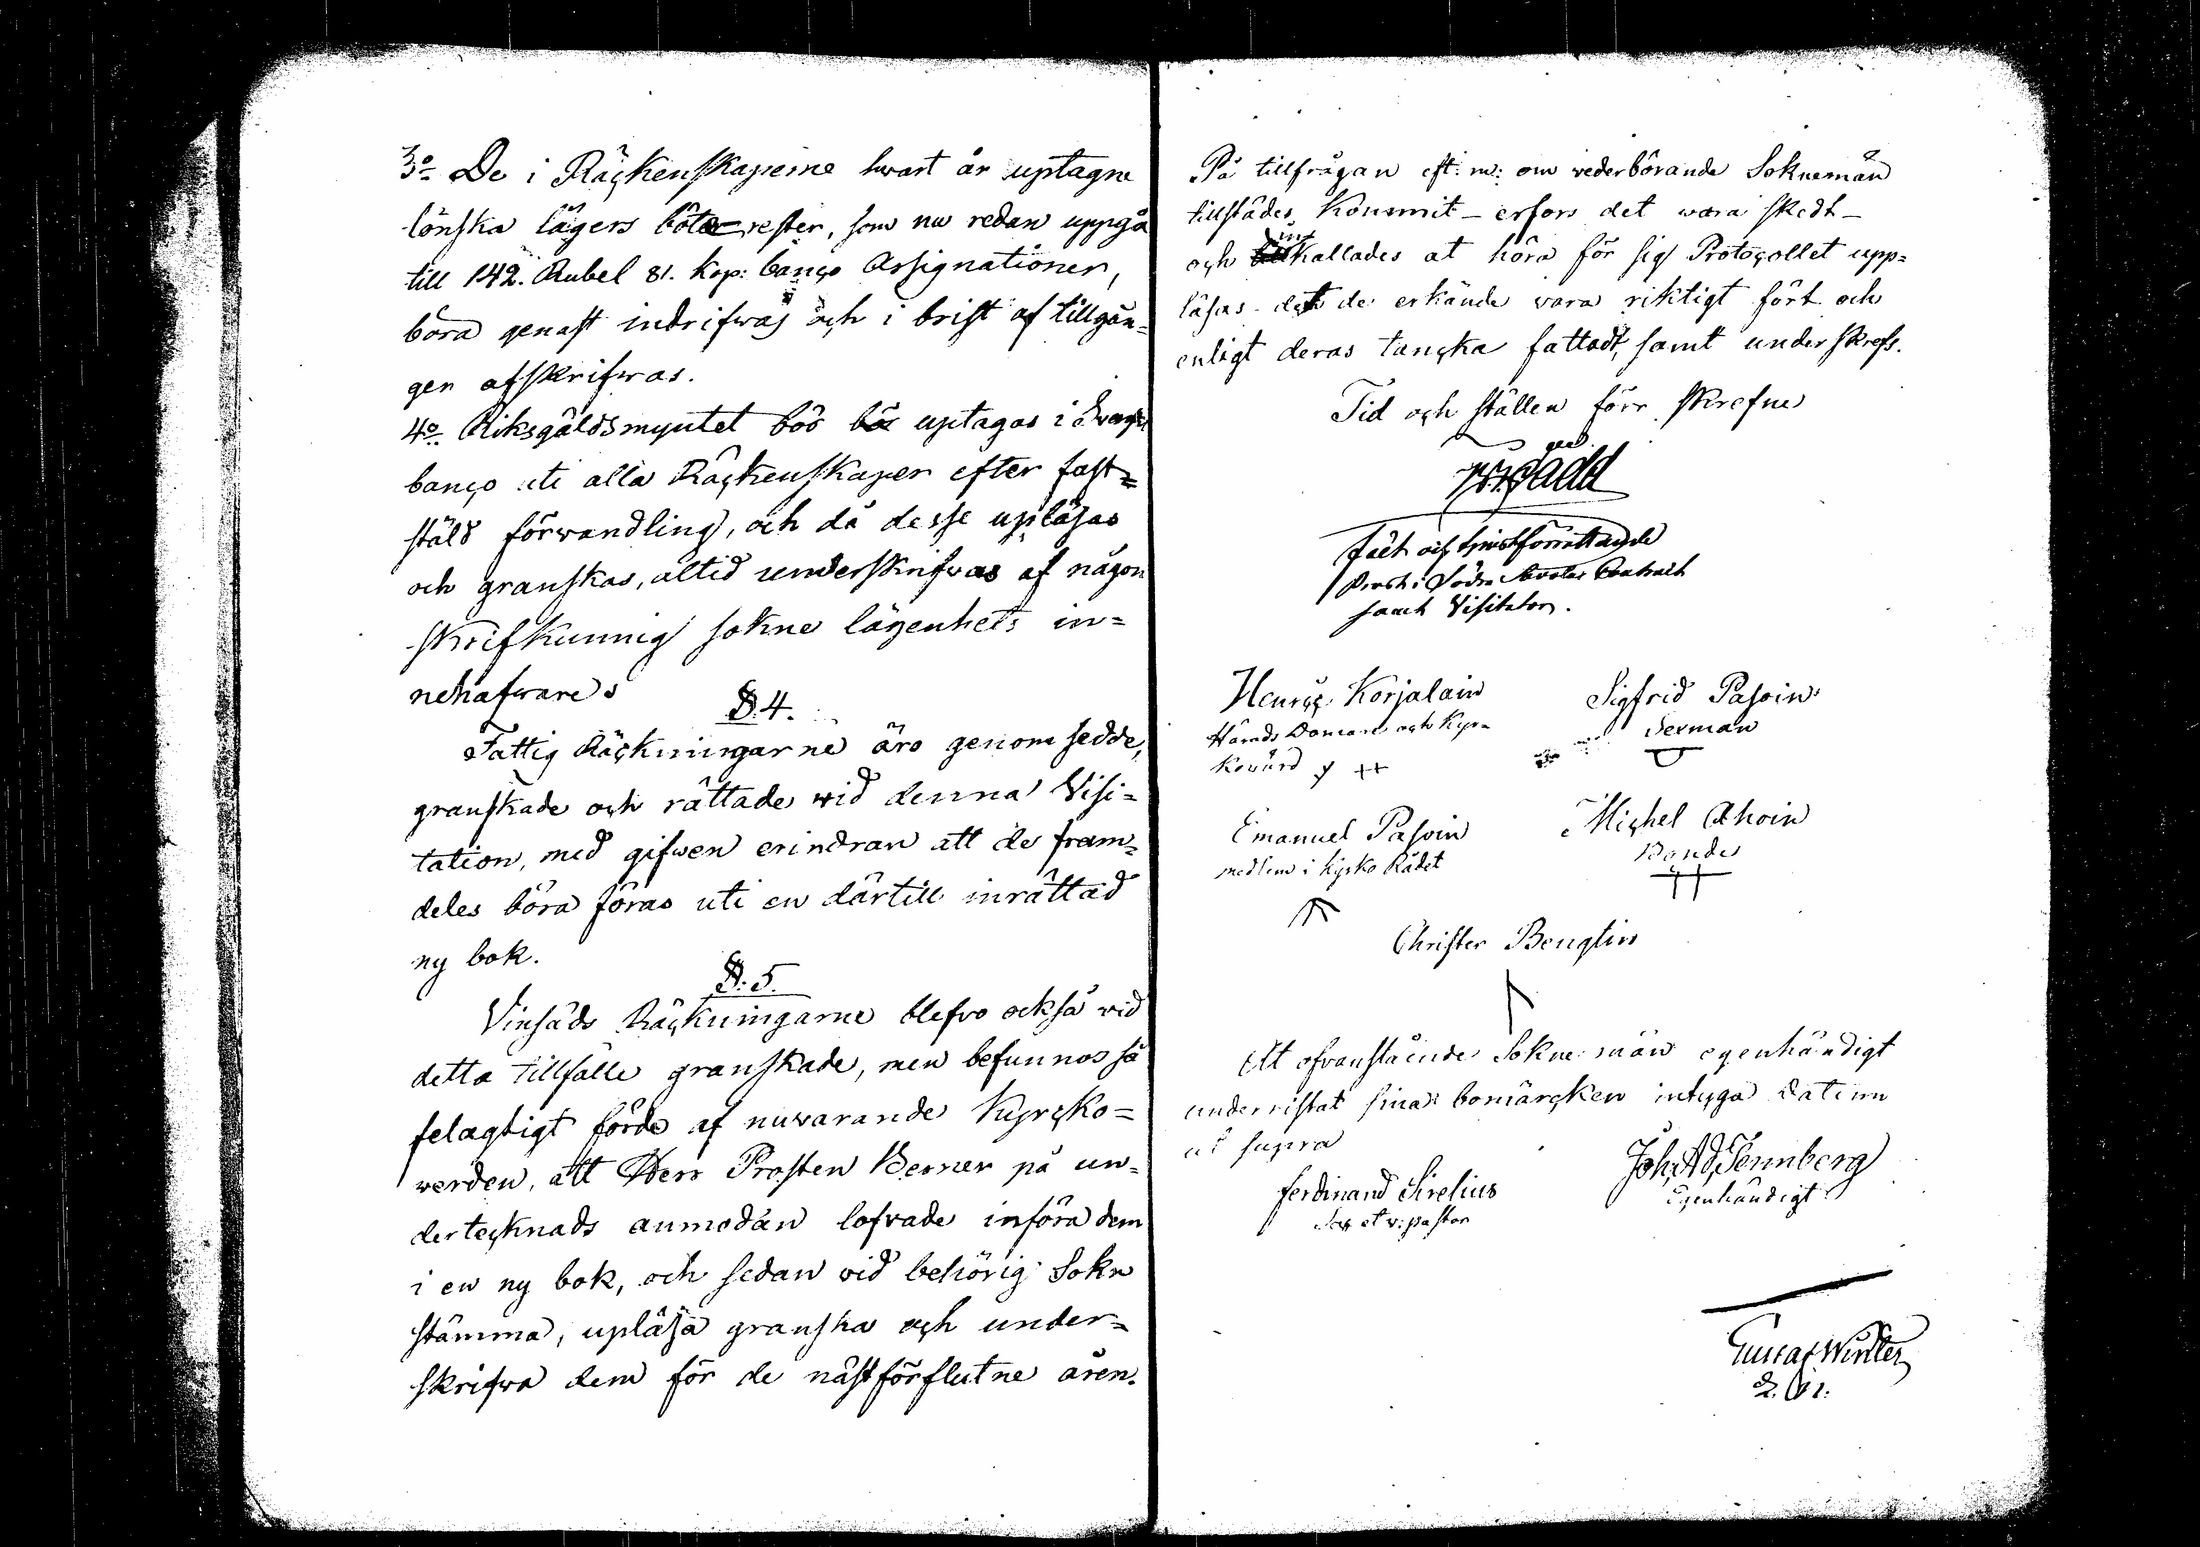 3o De i Räckenskaperne hwart år uptagne
lönska lägers böte rester, som nu redan uppgå
till 142. Rubel 81. Kop: banco Assignationer,
böra genast indrifwas och i brist af tillgån-
gen afskrifwas.
4o Riksgäldsmyntet bör uptagas i
banco uti alla Räckenskaper efter fast=
stäld förwandling, och då desse upläsas
och granskas, altid underskrifwas af någon
skrifkunnig sokne lägenhets in=
nehafware
§.4.
Fattig Räckningarne äro genomsedde,
granskade och rättade wid denna Visi=
tation, med gifwen erindran att de fram=
deles böra föras uti en därtill inrättad
ny bok.
§.5.
Vinsäds Räckningarne blefvo också wid
detta tillfälle granskade, men befunnos så
felagtigt förde af nuvarande Kyrcko=
werden, att Herr Prosten Berner på un=
dertecknads anmodan lofvade införa dem
i en ny bok, och sedan vid behörig Sokn
stämma, upläsa granska och under=
skrifwa dem för de nästförflutne åren.
På tillfrågan eft: m: om vederbörande Soknemän
tillstädes kommit _ erfors det wara skedt _
och inkallades at höra för sig Protocollet upp=
läsas det de erkände vara riktigt fört och
enligt deras tancka fattadt, samt underskrefs.
Tid och ställen förr skrefne
Prost i Södra Savolax Contract
samt Visitator.
Henric Korjalain
Härads Domare och Kyr=
kovärd
Sigfrid Pasoin
Sexman
Emanuel Pasoin
medlem i Kyrko Rådet
Michel Ahoin
Bonde
Christer Benglin
Att ofvanstående Soknemän egenhändigt
underristat sina bomärcken intyga Datum
ut supra
Ferdinand Sirelius
Sac et v: pastor
Joh. Ad. Tennberg
Egenhändigt
Gustaf Winter